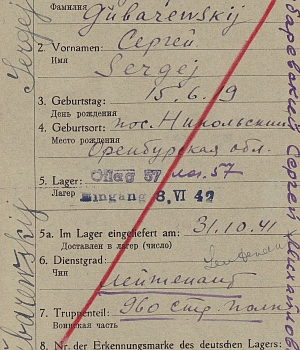 Фамилия Gubarewskij
2. Vornamen: Сергей
Имя Sergej
3. Geburtstag: 15.6.19
День рождения
4. Geburtsort: пос. Никольский
Место рождения
Оренбургская обл.
5. Lager: Oflag 57 лаг. 57
Лагер Eingang 8. VI 42
5a. Im Lager eingeliefert am: 31.10.41
Доставлен в лагер (число)
6. Dienstgrad: Leutenant
Чин Лейтенант
7. Truppenteil: 960 стр. полк
Воинская часть
8. Nr. der Erkennungsmarke des deutschen Lagers:
Sergej
Михайлов